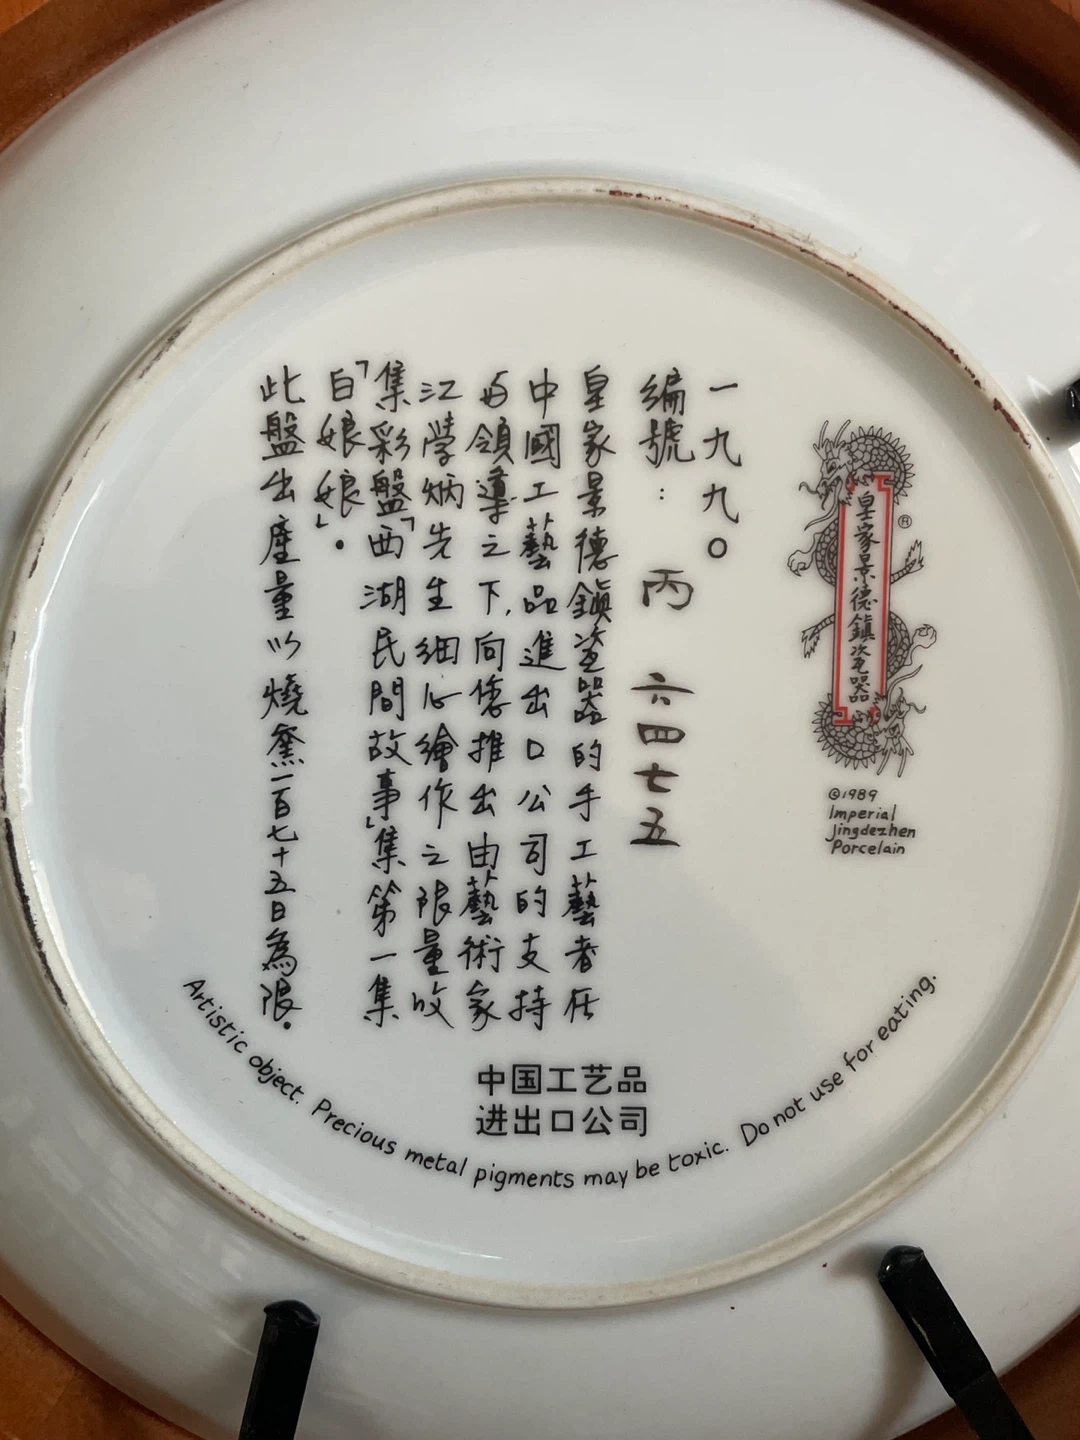 皇家景德鎮瓷器
®
©1989
Imperial
Jingdezhen
Porcelain
一九九〇
編號：丙 六四七五
皇家景德鎮瓷器的手工藝者在
中國工藝品進出口公司的支持
与領導之下,向您推出由藝術家
江學炳先生細心繪作之限量收
集彩盤「西湖民間故事」集第一集
「白娘娘」。
此盤出産量以燒窯一百七十五日為限。
中国工艺品
进出口公司
Artistic object. Precious metal pigments may be toxic. Do not use for eating.